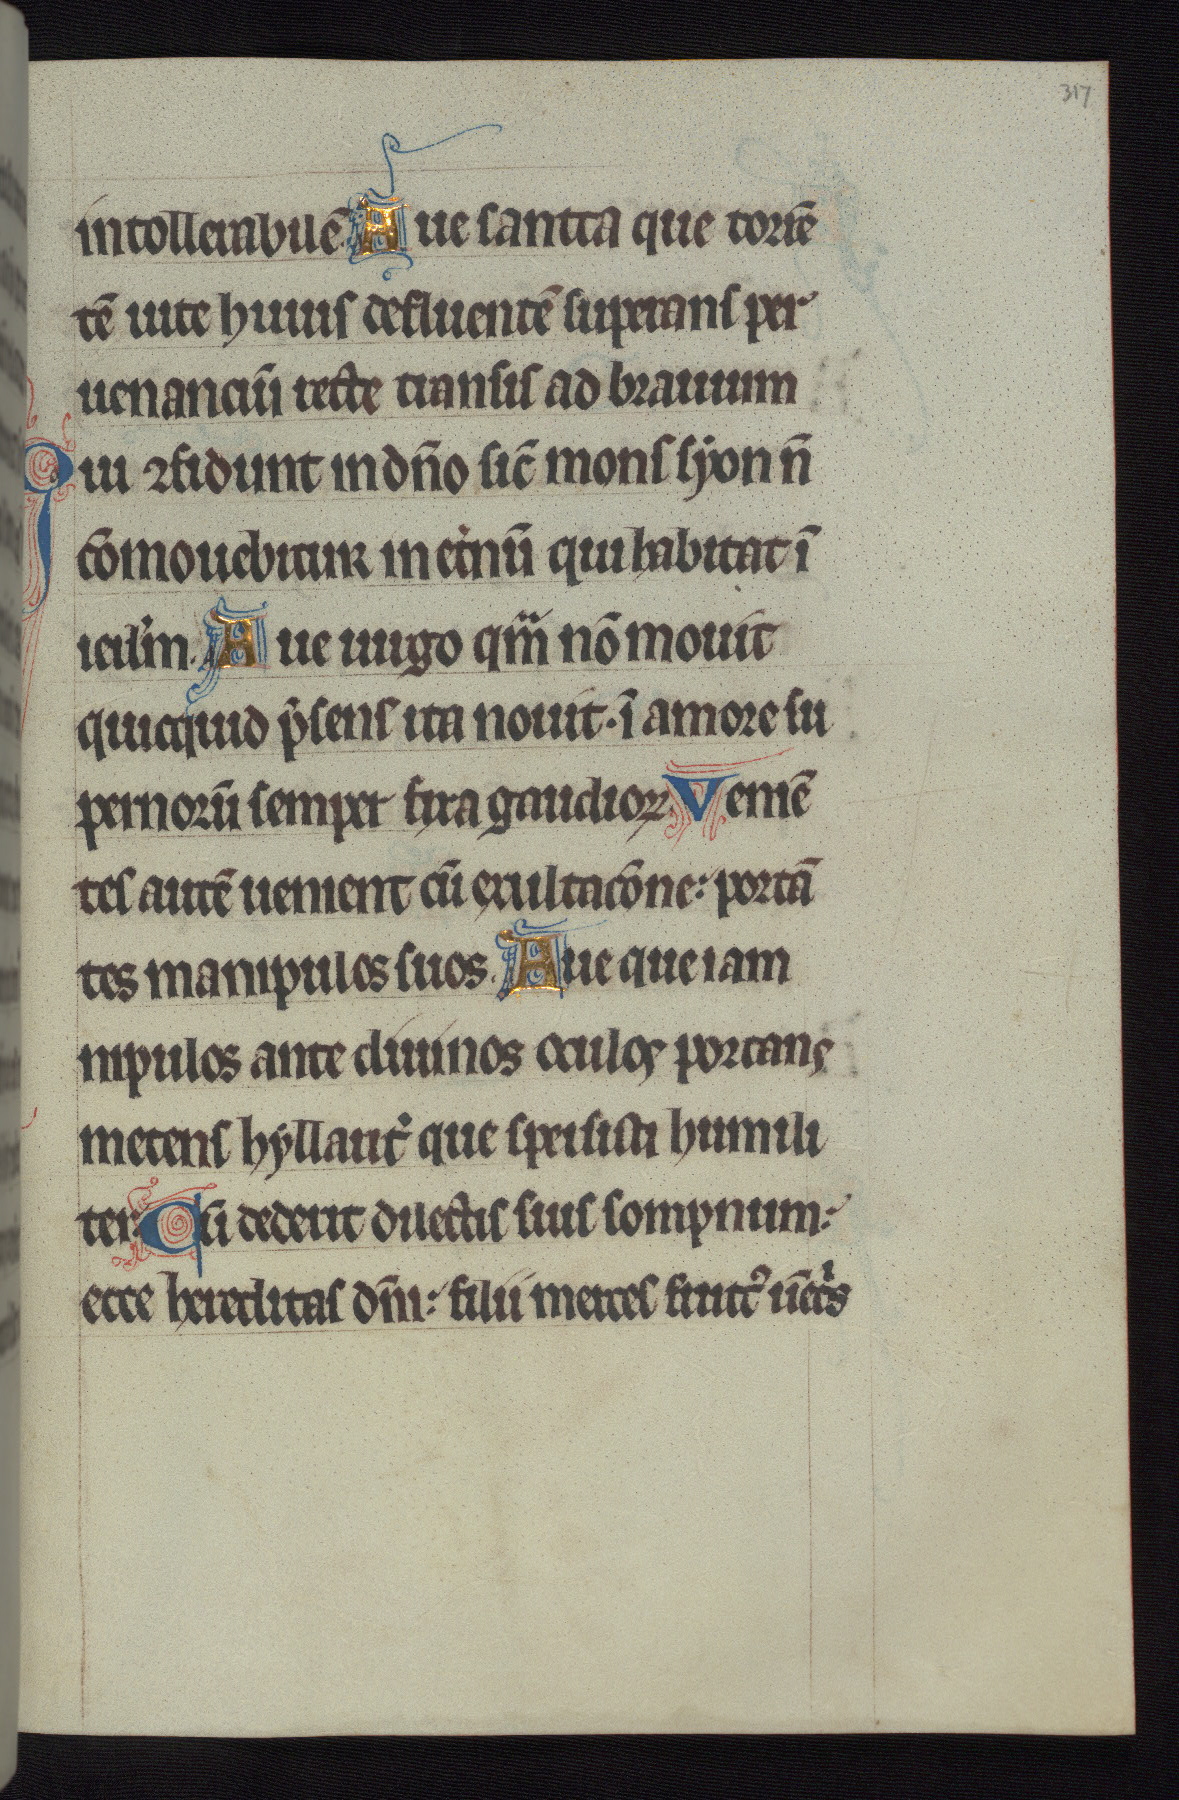 317
intollerabilē Aue sancta que torrē
tē uite huius defluentē superans per
uenanciū recte transis ad brauium
Qui ꝯfidunt in dño sic̄ mons syon ñ
cōmouebitur in et̾nū qui habitat ī
ierl̾m. Aue uirgo qm̄ nō mouit
quicquid p̄sens ita nouit. ī amore su
pernorū semper fixa gaudioꝝ Venien̄
tes autē uenient cū exultacōne: portā
tes manipulos suos. Aue que iam
nipulos ante diuinos oculos portans
metens hyllarit̾ que spersisti humili
ter Cū dederit dilectis suis sompnum:
ecce hereditas dm̄: filii merces fruct᾽ uētͥs